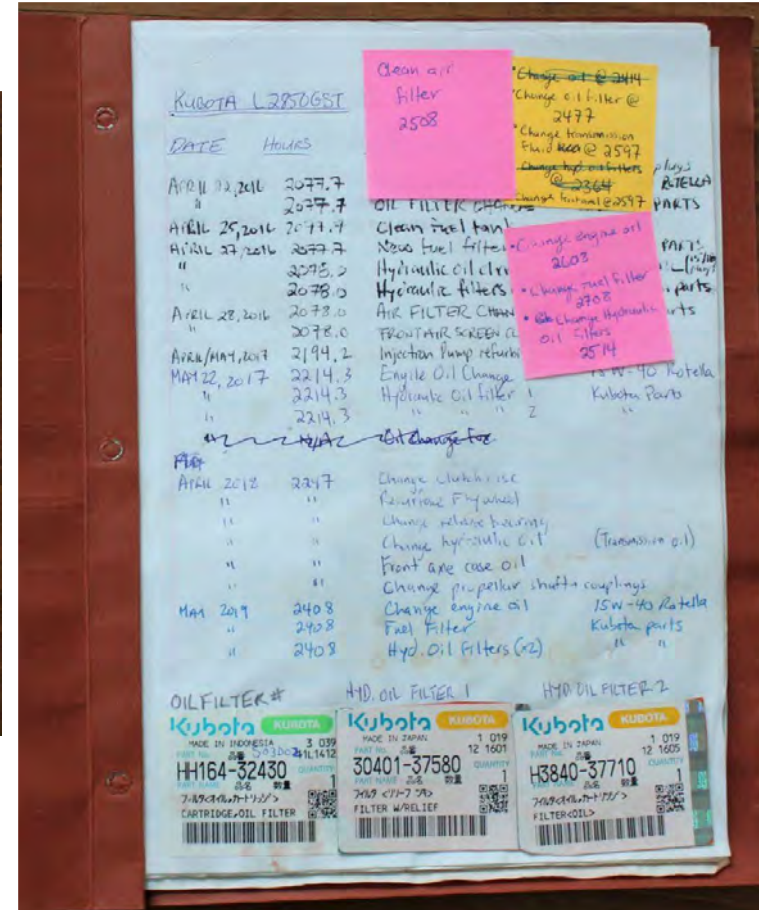 Clean air
filter
2508
• Change oil @ 2414
• Change oil filter @
2477
• Change transmission
Fluid @ 2597
Change hyd oil filters
@ 2364
@2597
• Change engine oil
2608
• Change Fuel Filter
2708
• Change Hydraulic
Oil Filters
2514
KUBOTA L2850GST
DATE HOURS
APRIL 22, 2016 2077.7 ROTELLA
" 2077.7 OIL FILTER CHANGE PARTS
APRIL 25, 2016 2077.7 Clean fuel tank
APRIL 27, 2016 2077.7 New fuel filter PARTS
" 2078.0 Hydraulic oil
" 2078.0 Hydraulic filters parts
APRIL 28, 2016 2078.0 AIR FILTER CHAN
" 2078.0 FRONT AIR SCREEN
APRIL/MAY, 2017 2194.2 Injection Pump refurbi
MAY 22, 2017 2214.3 Engine Oil Change 15W-40 Rotella
" 2214.3 Hydraulic Oil filter 1 Kubota Parts
" 2214.3 " " " 2 "
" N/A Oil Change For
APRIL 2018 2247 Change Clutch disc
" " Resurface Flywheel
" " Change release bearing
" " Change hydraulic oil (Transmission oil)
" " Front axle case oil
" " Change propellar shaft couplings
MAY 2019 2408 Change engine oil 15W-40 Rotella
" 2408 Fuel Filter Kubota parts
" 2408 Hyd. Oil Filters (x2) " "
OIL FILTER # HYD. OIL FILTER 1 HYD OIL FILTER 2
Kubota KUBOTA
MADE IN INDONESIA 3 039
PART No. 品番 41L1412
HH164-32430 QUANTITY
PART NAME 品名 数量 1
フィルタ<オイル,カートリッジ>
CARTRIDGE,OIL FILTER
Kubota KUBOTA
MADE IN JAPAN 1 019
PART No. 品番 12 1601
30401-37580 QUANTITY
PART NAME 品名 数量 1
FILTER W/RELIEF
Kubota KUBOTA
MADE IN JAPAN 1 019
PART No. 品番 12 1605
H3840-37710 QUANTITY
PART NAME 品名 数量 1
フィルタ<オイル>
FILTER<OIL>